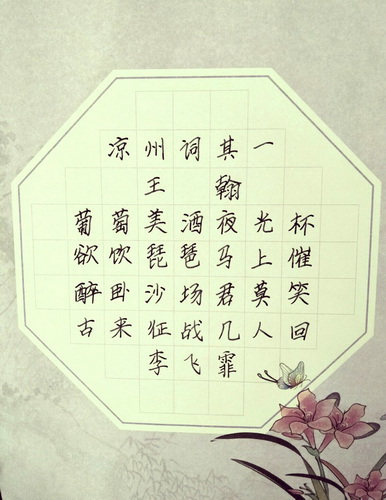 凉州词其一
王翰
葡萄美酒夜光杯
欲饮琵琶马上催
醉卧沙场君莫笑
古来征战几人回
李飞霏